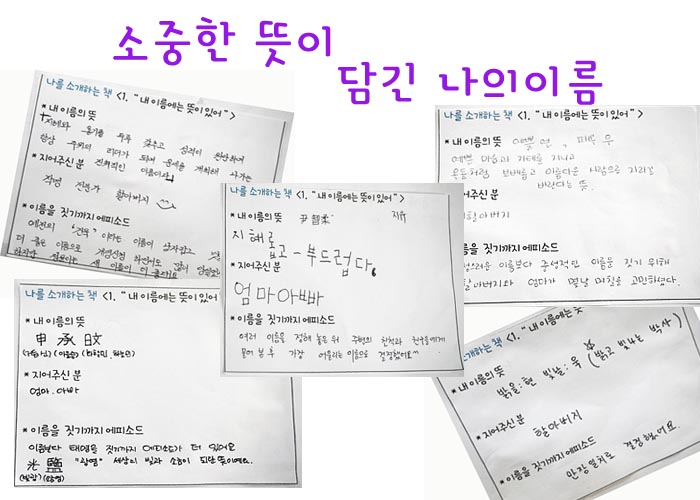 소중한 뜻이
담긴 나의이름
나를 소개하는 책 <1. "내 이름에는 뜻이 있어">
* 내 이름의 뜻
지혜와 용기를 두루 갖추고 성격이 원만하여
항상 주위의 리더가 되며 운세를 개척해 가는
진취적인 이름이라
* 지어주신 분
작명 전문가 할아버지
* 이름을 짓기까지 에피소드
예전의 이라는 이름이
더 좋은 이름으로
나를 소개하는 책 <1. "내 이름에는 뜻이 있어">
* 내 이름의 뜻 예쁠 연,
예쁜 마음과 자태를 지니고
보배롭고 아름다운 사람으로 자라길
바란다는 뜻.
지어주신분
할아버지
이름을 짓기까지 에피소드
이름보다 중성적인 이름을 짓기 위해
할아버지와 엄마가 몇날 며칠을 고민하셨다.
나를 소개하는 책 <1. "내 이름에는 뜻이 있어">
* 내 이름의 뜻 尹智柔 지유
지혜롭고 - 부드럽다.
* 지어주신 분
엄마아빠
* 이름을 짓기까지 에피소드
여러 이름을 정해 놓은 뒤 주변의 친척과 친구들에게
물어 본 후 가장 어울리는 이름으로 결정했어요^^
나를 소개하는 책 <1. "내 이름에는 뜻이 있어
* 내 이름의 뜻
申 承 旼
* 지어주신 분
엄마. 아빠
* 이름을 짓기까지 에피소드
이름보다 태명을 짓기까지 에피소드가 더 있어요
光 鹽 "광염" 세상의 빛과 소금이 되란 뜻이에요.
소개하는 책 <1. "내 이름에는 뜻
* 내 이름의 뜻
밝을:현 빛날:욱 (밝고 빛나는 박사)
* 지어주신 분
할아버지
* 이름을 짓기까지 에피소드
만장일치로 결정했어요.